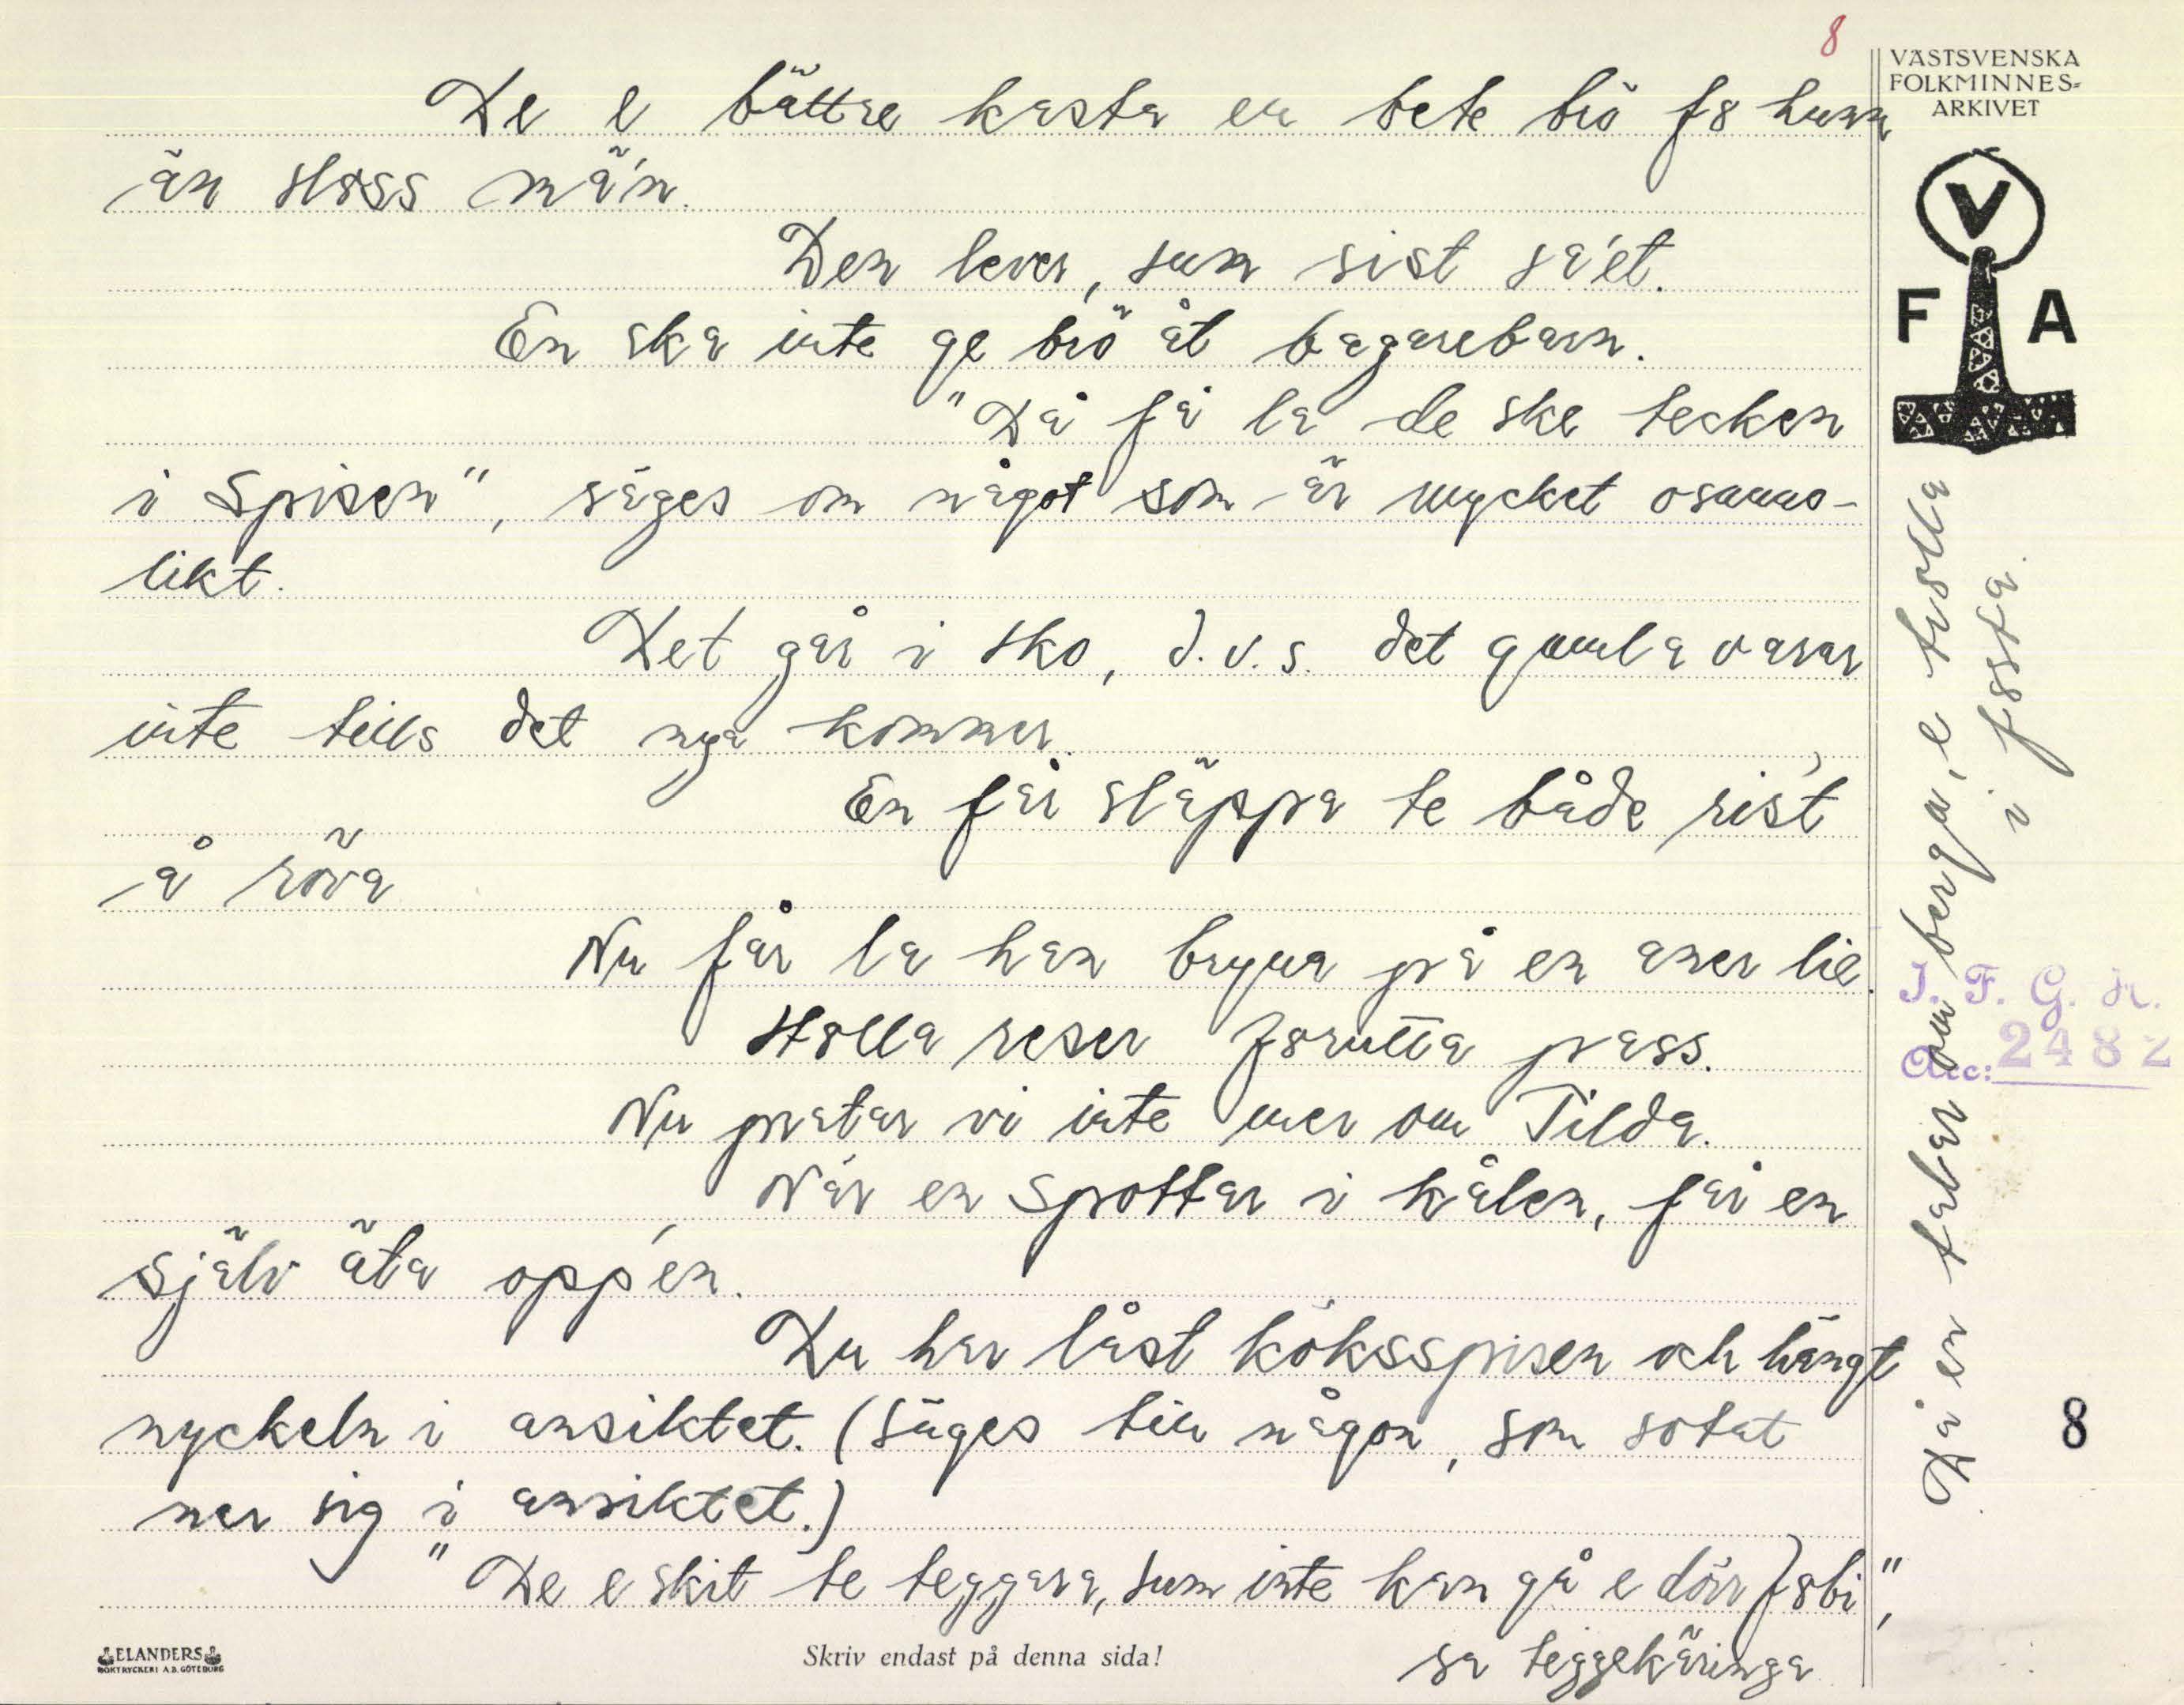 8
VÄSTSVENSKA
FOLKMINNES-
ARKIVET
V
F A
De e bättre kasta en bete brö f8 hunn
än sl8ss mä'n.
Den lever, sum sist sa'et.
En ska inte ge brö åt bagarebarn.
"Då få la de ske tecken
i Spisen", säges om något som är mycket osanno-
likt.
Det går i sko, d.v.s. det gamla varar
inte tills det nya kommer.
En får släppa te både ris't
å röva
Nu får la han brynna på en aner lie.
St8lla reser f8rutta pass.
Nu pratar vi inte mer om Tilda.
När en Spottar i kålen, får en
själv äta opp'en.
Du har låst köksspisen och hängt
nyckeln i ansiktet. (Säges till någon, som sotat
ner sig i ansiktet.)
"De e skit te teggara, sum inte kan gå e dörr f8bi",
sa teggekäringa
Då en talar om berga, e tr8lla
i f8sta.
I. F. G. H.
Acc: 2482
8
ELANDERS
BOKTRYCKERI A.B. GÖTEBORG
Skriv endast på denna sida!